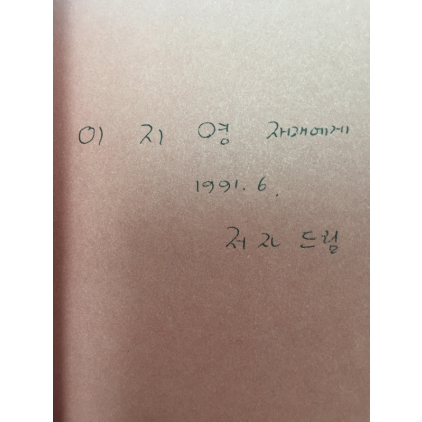 이 지 영 저자에게
1991. 6.
저자 드림